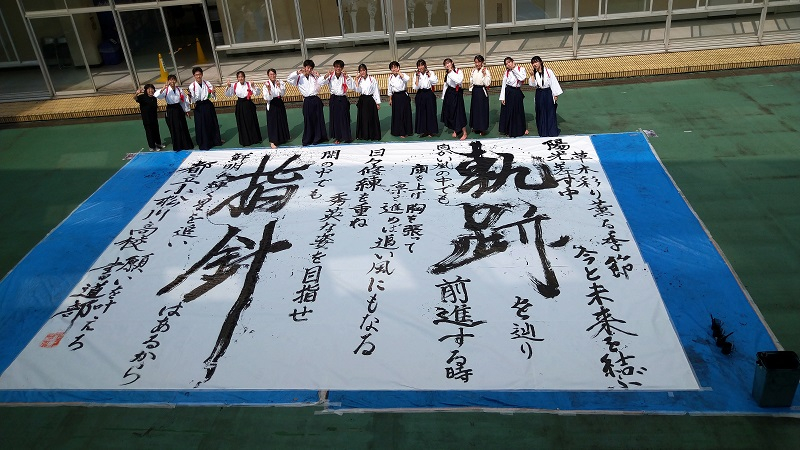 草木彩り薫る季節
陽光差す中
今と未来を結ぶ
軌跡
を辿り
前進する時
顔を上げ胸を張って
進めば追い風にもなる
日々修練を重ね
闇の中でも
秀英な姿を目指せ
指針
はあるから
鮮明に輝く星を追い
願いを叶える
都立小松川高校
書道部